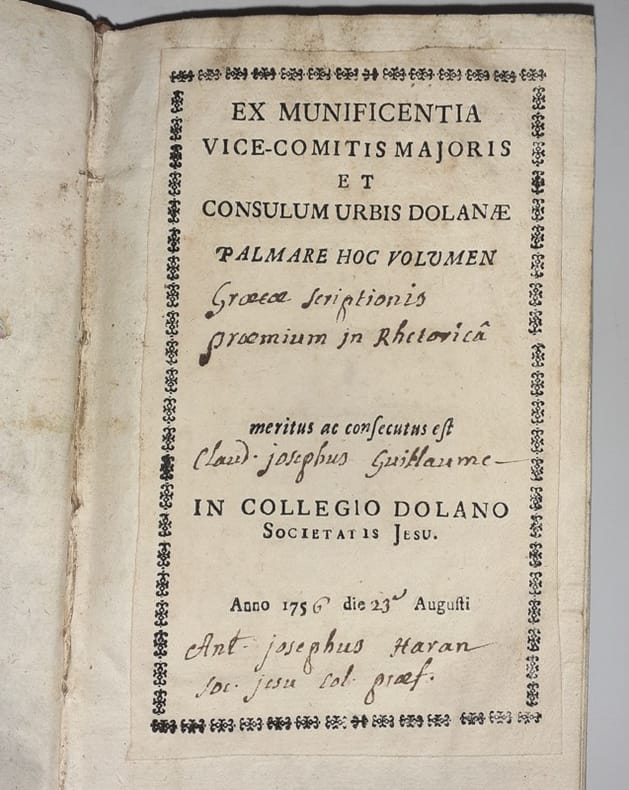 EX MUNIFICENTIA
VICE-COMITIS MAJORIS
ET
CONSULUM URBIS DOLANÆ
PALMARE HOC VOLUMEN
Græcæ scriptionis
præmium in Rhetoricâ
meritus ac consecutus est
Claud. josephus Guillaume
IN COLLEGIO DOLANO
SOCIETATIS JESU.
Anno 1756 die 23a Augusti
Ant. josephus Haran
soc. jesu col. præf.